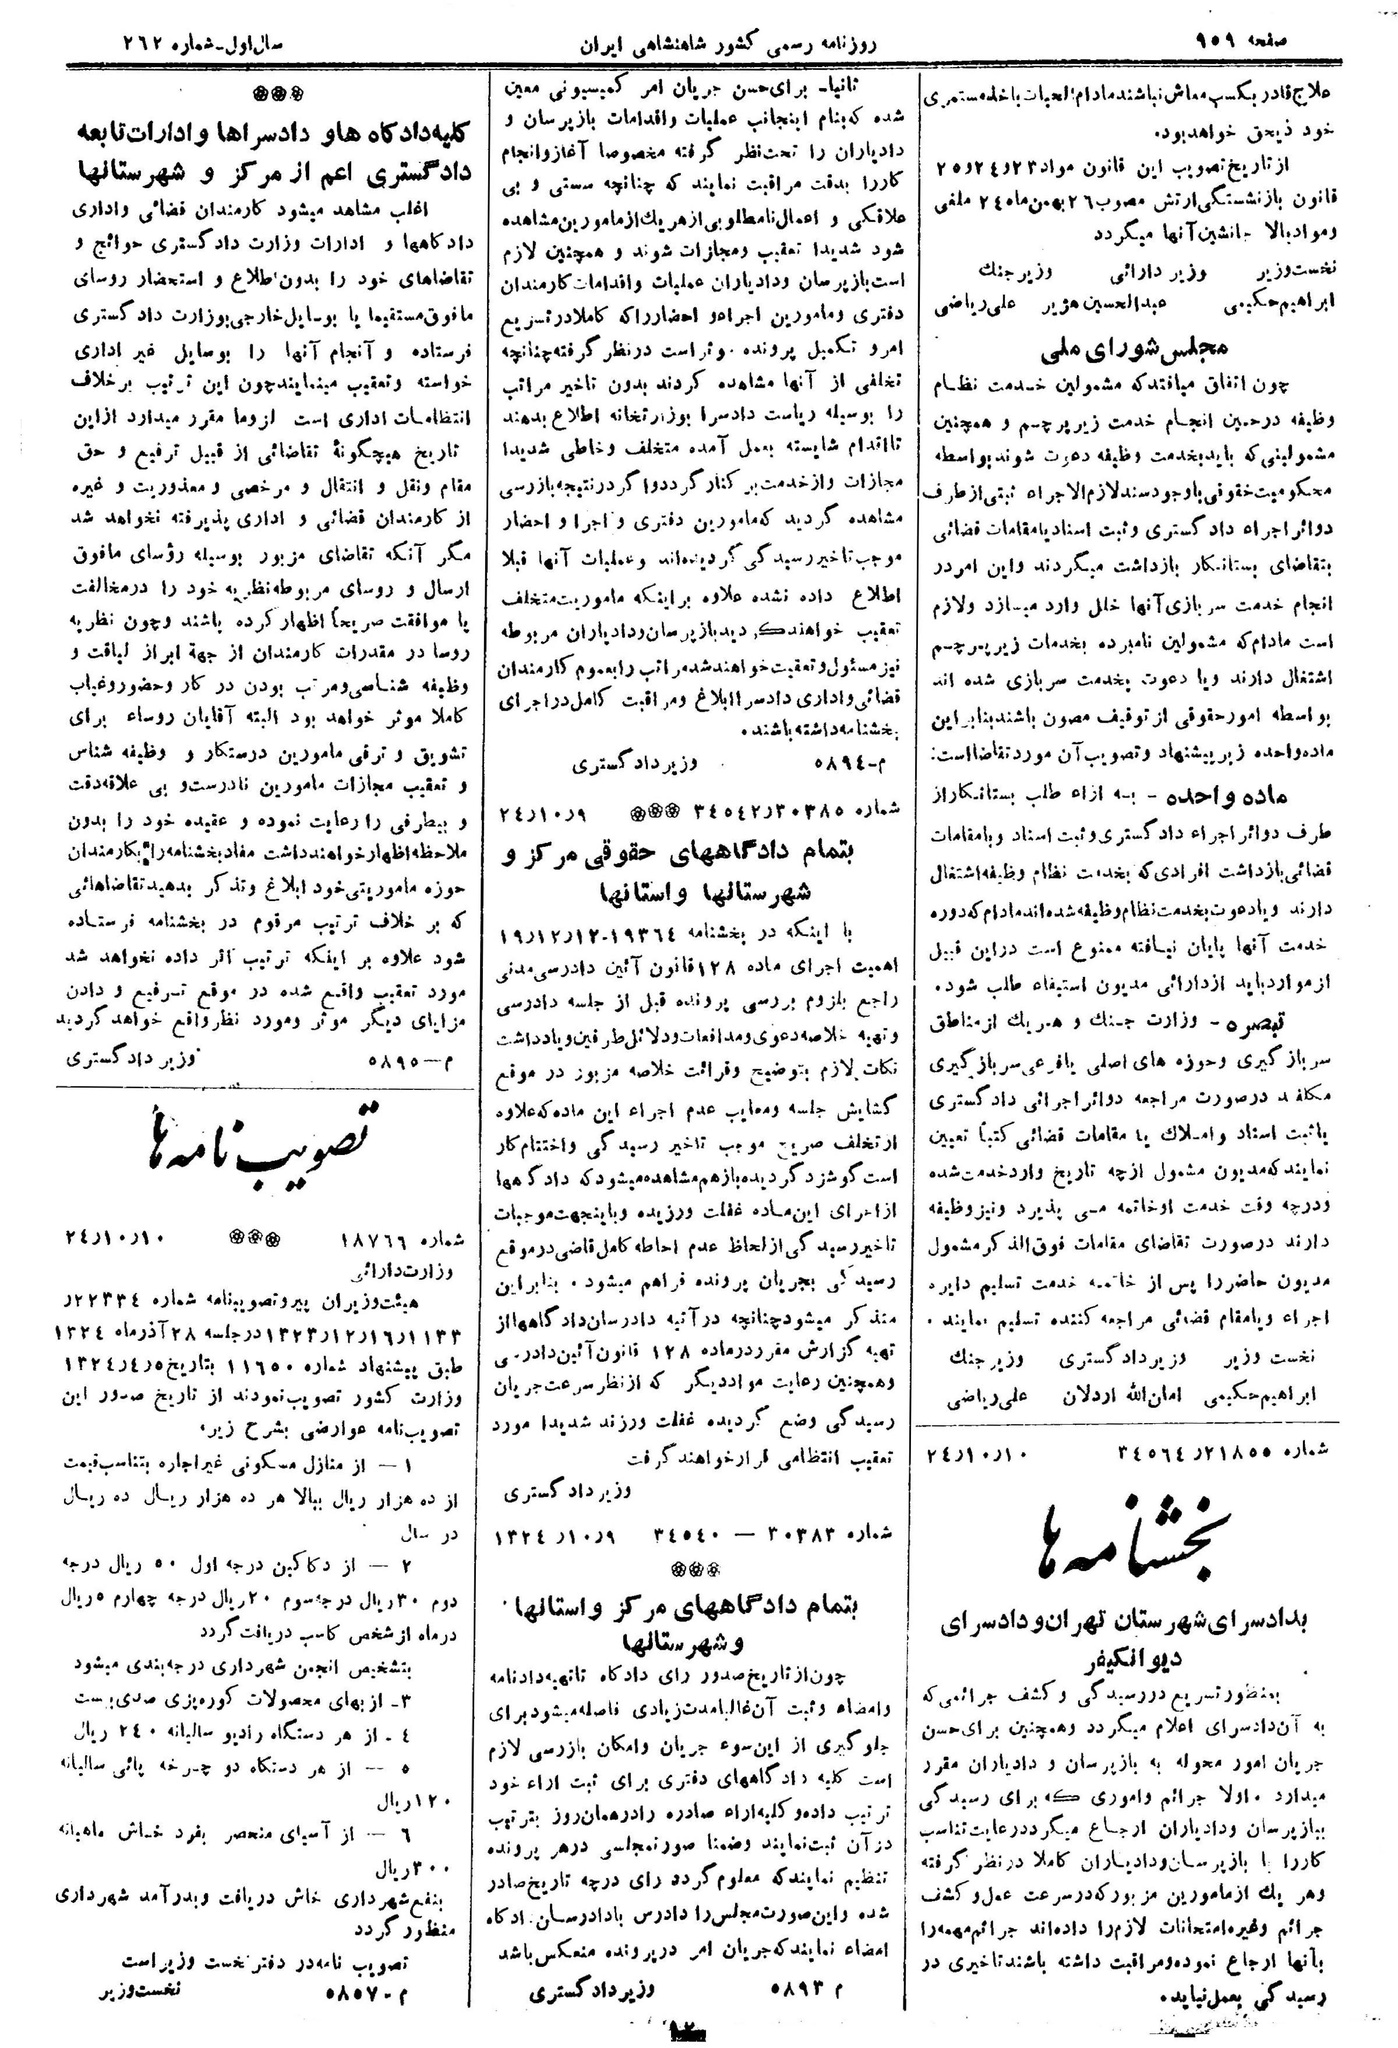 صفحه ۹۵۹
روزنامه رسمی کشور شاهنشاهی ایران
سال اول-شماره ۲۶۲
علاج قادر بکسب معاش نباشند مادام الحیات باخذ مستمری
خود ذیحق خواهد بود.
از تاریخ تصویب این قانون مواد ۲۳ر۲۴ر۲۵
قانون بازنشستگی ارتش مصوب ۲۶ بهمن ماه ۲۴ ملغی
و مواد بالا جانشین آنها میگردد
نخست وزیر وزیر دارائی وزیر جنك
ابراهیم حکیمی عبدالحسین هژیر علی ریاضی
مجلس شورای ملی
چون اتفاق میافتد که مشمولین خدمت نظام
وظیفه در حین انجام خدمت زیر پرچم و همچنین
مشمولینی که باید بخدمت وظیفه دعوت شوند بواسطه
محکومیت حقوقی با وجود سند لازم الاجراء ثبتی از طرف
دوائر اجراء دادگستری و ثبت اسناد یا مقامات قضائی
بتقاضای بستانکار بازداشت میگردند و این امر در
انجام خدمت سربازی آنها خلل وارد میسازد و لازم
است مادام که مشمولین نامبرده بخدمات زیر پرچم
اشتغال دارند و یا دعوت بخدمت سربازی شده اند
بواسطه امور حقوقی از توقیف مصون باشند بنابر این
ماده واحده زیر پیشنهاد و تصویب آن مورد تقاضا است:
ماده واحده - به ازاء طلب بستانکار از
طرف دوائر اجراء دادگستری و ثبت اسناد و یا مقامات
قضائی بازداشت افرادی که بخدمت نظام وظیفه اشتغال
دارند و یا دعوت بخدمت نظام وظیفه شده اند مادام که دوره
خدمت آنها پایان نیافته ممنوع است در این قبیل
از موارد باید از دارائی مدیون استیفاء طلب شود.
تبصره - وزارت جنك و هر یك از مناطق
سرباز گیری و حوزه های اصلی یا فرعی سرباز گیری
مکلفند در صورت مراجعه دوائر اجرائی دادگستری
یا ثبت اسناد و املاك یا مقامات قضائی کتباً تعیین
نمایند که مدیون مشمول از چه تاریخ وارد خدمت شده
و در چه وقت خدمت او خاتمه می پذیرد و نیز وظیفه
دارند در صورت تقاضای مقامات فوق الذکر مشمول
مدیون حاضر را پس از خاتمه خدمت تسلیم دایره
اجراء و یا مقام قضائی مراجعه کننده تسلیم نمایند.
نخست وزیر وزیر دادگستری وزیر جنك
ابراهیم حکیمی امان الله اردلان علی ریاضی
شماره ۲۱۸۵۵ر۳۴۵۶۴ ۲۴ر۱۰ر۱۰
بخشنامه ها
بدادسرای شهرستان تهران و دادسرای
دیوانکیفر
بمنظور تسریع در رسیدگی و کشف جرائمی که
به آن دادسرای اعلام میگردد و همچنین برای حسن
جریان امور محوله به بازپرسان و دادیاران مقرر
میدارد. اولا جرائم و اموری که برای رسیدگی
ببازپرسان و دادیاران ارجاع میگردد رعایت تناسب
کار را با بازپرسان و دادیاران کاملا در نظر گرفته
و هر یك از مامورین مزبور که در سرعت عمل و کشف
جرائم و غیره امتحانات لازم را داده اند جرائم مهمه را
بآنها ارجاع نموده و مراقبت داشته باشند تاخیری در
رسیدگی بعمل نیاید.
ثانیا- برای حسن جریان امر کمیسیونی معین
شده که بنام اینجانب عملیات و اقدامات بازپرسان و
دادیاران را تحت نظر گرفته مخصوصا آغاز و انجام
کار را بدقت مراقبت نمایند که چنانچه سستی و بی
علاقگی و اعمال نامطلوبی از هر یك از مامورین مشاهده
شود شدیدا تعقیب و مجازات شوند و همچنین لازم
است بازپرسان و دادیاران عملیات و اقدامات کارمندان
دفتری و مامورین اجراء و احضار را که کاملا در تسریع
امر و تکمیل پرونده موثر است در نظر گرفته چنانچه
تخلفی از آنها مشاهده کردند بدون تاخیر مراتب
را بوسیله ریاست دادسرا بوزارتخانه اطلاع بدهند
تا اقدام شایسته بعمل آمده متخلف و خاطی شدیدا
مجازات و از خدمت بر کنار گردد و اگر در نتیجه بازرسی
مشاهده گردید که مامورین دفتری و اجرا و احضار
موجب تاخیر رسیدگی گردیده اند و عملیات آنها قبلا
اطلاع داده نشده علاوه بر اینکه ماموریت متخلف
تعقیب خواهند گردید بازپرسان و دادیاران مربوطه
نیز مسئول و تعقیب خواهند شد مراتب را بعموم کارمندان
قضائی و اداری دادسرا ابلاغ و مراقبت کامل در اجرای
بخشنامه داشته باشند.
م-۵۸۹۴ وزیر دادگستری
شماره ۳۰۳۸۵ر۳۴۵۴۲ ۲۴ر۱۰ر۹
بتمام دادگاههای حقوقی مرکز و
شهرستانها و استانها
با اینکه در بخشنامه ۱۹۳۶۴-۱۲ر۱۲ر۱۹
اهمیت اجرای ماده ۱۲۸ قانون آئین دادرسی مدنی
راجع بلزوم بررسی پرونده قبل از جلسه دادرسی
و تهیه خلاصه دعوی و مدافعات و دلائل طرفین و یادداشت
نکات لازم بتوضیح و قرائت خلاصه مزبور در موقع
گشایش جلسه و معایب عدم اجراء این ماده که علاوه
از تخلف صریح موجب تاخیر رسیدگی و اختتام کار
است گوشزد گردیده باز هم مشاهده میشود که دادگاهها
از اجرای این ماده غفلت ورزیده و باینجهت موجبات
تاخیر رسیدگی از لحاظ عدم احاطه کامل قاضی در موقع
رسیدگی بجریان پرونده فراهم میشود. بنابر این
متذکر میشود چنانچه در آتیه دادرسان دادگاهها از
تهیه گزارش مقرر در ماده ۱۲۸ قانون آئین دادرسی
و همچنین رعایت مواد دیگر که از نظر سرعت جریان
رسیدگی وضع گردیده غفلت ورزند شدیدا مورد
تعقیب انتظامی قرار خواهند گرفت
وزیر دادگستری
شماره ۳۰۳۸۳ — ۳۴۵۴۰ ۹ر۱۰ر۱۳۲۴
بتمام دادگاههای مرکز و استانها
و شهرستانها
چون از تاریخ صدور رای دادگاه تا تهیه دادنامه
و امضاء و ثبت آن غالبا مدت زیادی فاصله میشود برای
جلوگیری از این سوء جریان و امکان بازرسی لازم
است کلیه دادگاههای دفتری برای ثبت اراء خود
ترتیب داده و کلیه اراء صادره را در همان روز بترتیب
در آن ثبت نمایند و ضمنا صورتمجلسی در هر پرونده
تنظیم نمایند که معلوم گردد رای در چه تاریخ صادر
شده و این صورت مجلس را دادرس یا دادرسان دادگاه
امضاء نمایند که جریان امر در پرونده منعکس باشد
م ۵۸۹۳ وزیر دادگستری
کلیه دادگاه ها و دادسراها و ادارات تابعه
دادگستری اعم از مرکز و شهرستانها
اغلب مشاهد میشود کارمندان قضائی و اداری
دادگاهها و ادارات وزارت دادگستری حوائج و
تقاضاهای خود را بدون اطلاع و استحضار روسای
مافوق مستقیما یا بوسایل خارجی بوزارت دادگستری
فرستاده و انجام آنها را بوسایل غیر اداری
خواسته و تعقیب مینمایند چون این ترتیب بر خلاف
انتظامات اداری است لزوما مقرر میدارد از این
تاریخ هیچگونهٔ تقاضائی از قبیل ترفیع و حق
مقام و نقل و انتقال و مرخصی و معذوریت و غیره
از کارمندان قضائی و اداری پذیرفته نخواهد شد
مگر آنکه تقاضای مزبور بوسیله رؤسای مافوق
ارسال و روسای مربوطه نظریه خود را در مخالفت
یا موافقت صریحاً اظهار کرده باشند و چون نظریه
روسا در مقدرات کارمندان از جهة ابراز لیاقت و
وظیفه شناسی و مرتب بودن در کار و حضور و غیاب
کاملا موثر خواهد بود البته آقایان روساء برای
تشویق و ترقی مامورین درستکار و وظیفه شناس
و تعقیب مجازات مامورین نادرست و بی علاقه دقت
و بیطرفی را رعایت نموده و عقیده خود را بدون
ملاحظه اظهار خواهند داشت مفاد بخشنامه را بکارمندان
حوزه ماموریتی خود ابلاغ و تذکر بدهید تقاضاهائی
که بر خلاف ترتیب مرقوم در بخشنامه فرستاده
شود علاوه بر اینکه ترتیب اثر داده نخواهد شد
مورد تعقیب واقع شده در موقع ترفیع و دادن
مزایای دیگر موثر و مورد نظر واقع خواهد گردید
م—۵۸۹۵ وزیر دادگستری
تصویب نامه ها
شماره ۱۸۷۶۶ ۲۴ر۱۰ر۱۰
وزارت دارائی
هیئت وزیران پیرو تصویبنامه شماره ۲۲۳۳۴ر
۱۱۳۳ر۱۶ر۱۲ر۱۳۲۳ در جلسه ۲۸ آذر ماه ۱۳۲۴
طبق پیشنهاد شماره ۱۱۶۵۰ بتاریخ ۵ر۴ر۱۳۲۴
وزارت کشور تصویب نمودند از تاریخ صدور این
تصویب نامه عوارضی بشرح زیر.
۱ — از منازل مسکونی غیر اجاره بتناسب قیمت
از ده هزار ریال ببالا هر ده هزار ریال ده ریال
در سال
۲ — از دکاکین درجه اول ۵۰ ریال درجه
دوم ۳۰ ریال درجه سوم ۲۰ ریال درجه چهارم ۵ ریال
در ماه از شخص کاسب دریافت گردد
بتشخیص انجمن شهرداری درجه بندی میشود
۳- از بهای محصولات کوره پزی صدی بیست
۴ ـ از هر دستگاه رادیو سالیانه ۲۴۰ ریال
۵ — از هر دستگاه دو چرخه پائی سالیانه
۱۲۰ ریال
۶ — از آسیای منحصر بفرد خاش ماهیانه
۳۰۰ ریال
بنفع شهرداری خاش دریافت و بدرآمد شهرداری
منظور گردد
تصویب نامه در دفتر نخست وزیر است
م-۵۸۵۷ نخست وزیر